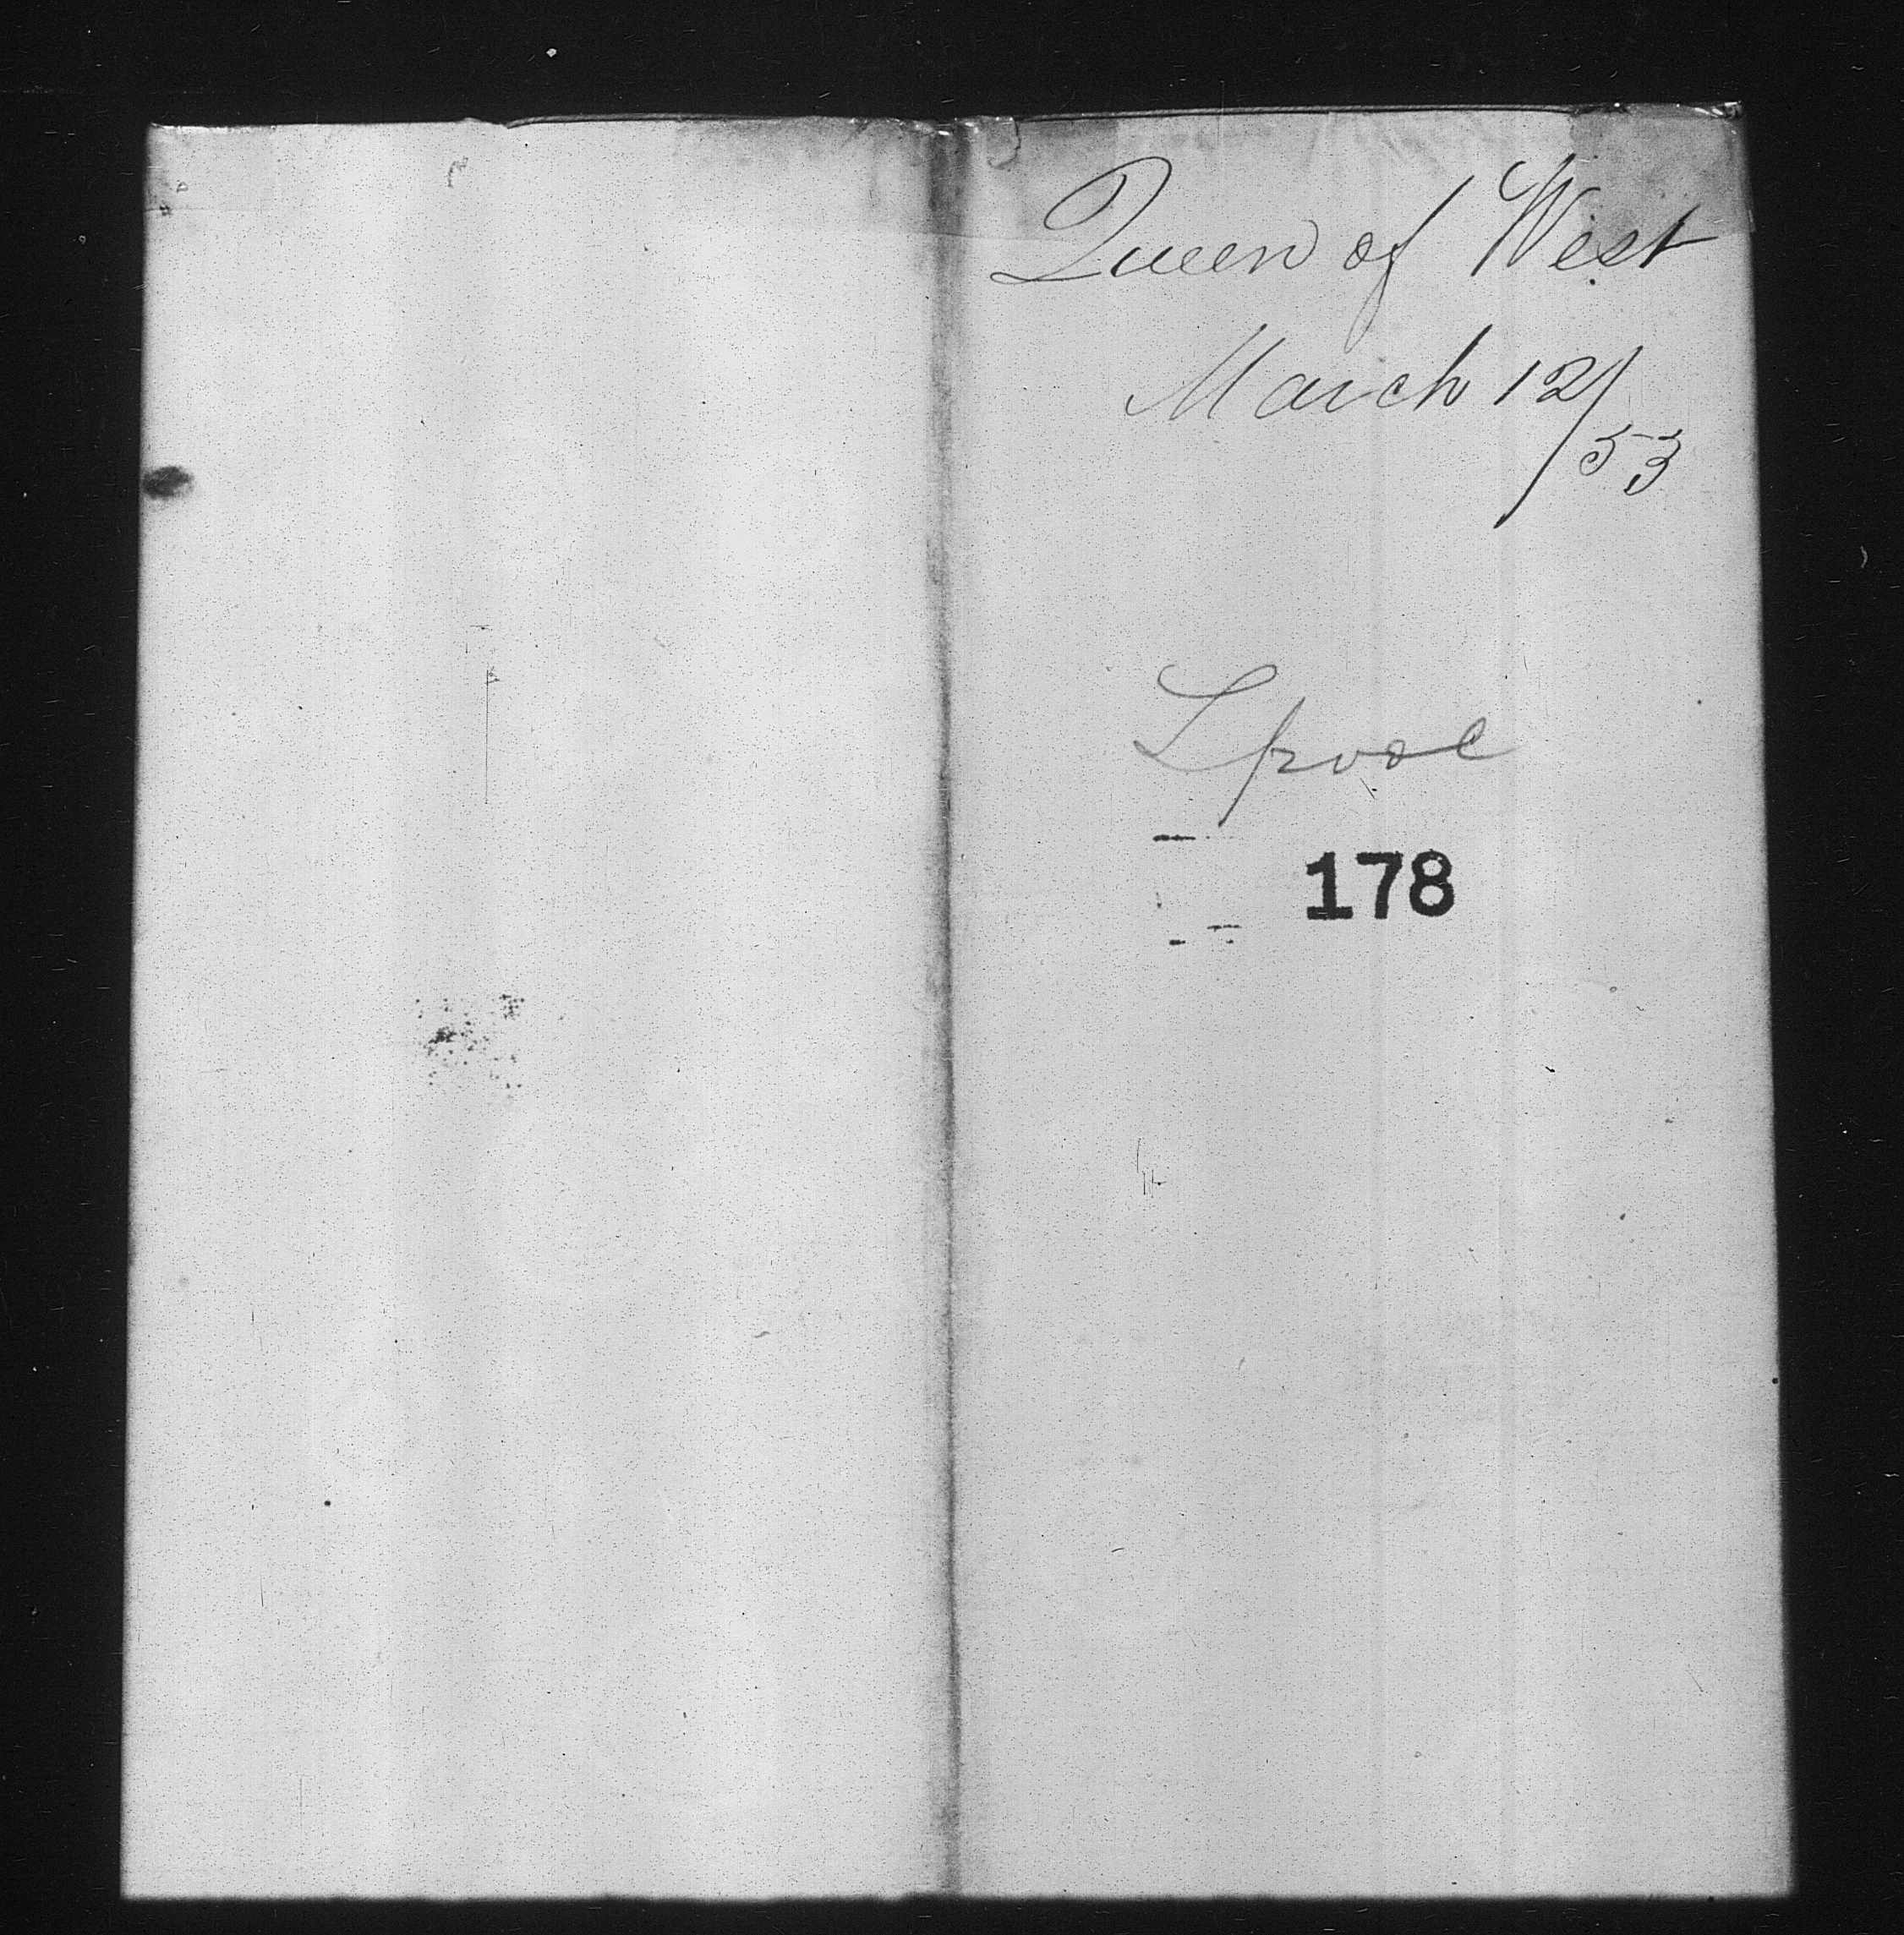 Queen of West
March 12/53
Lpool
178